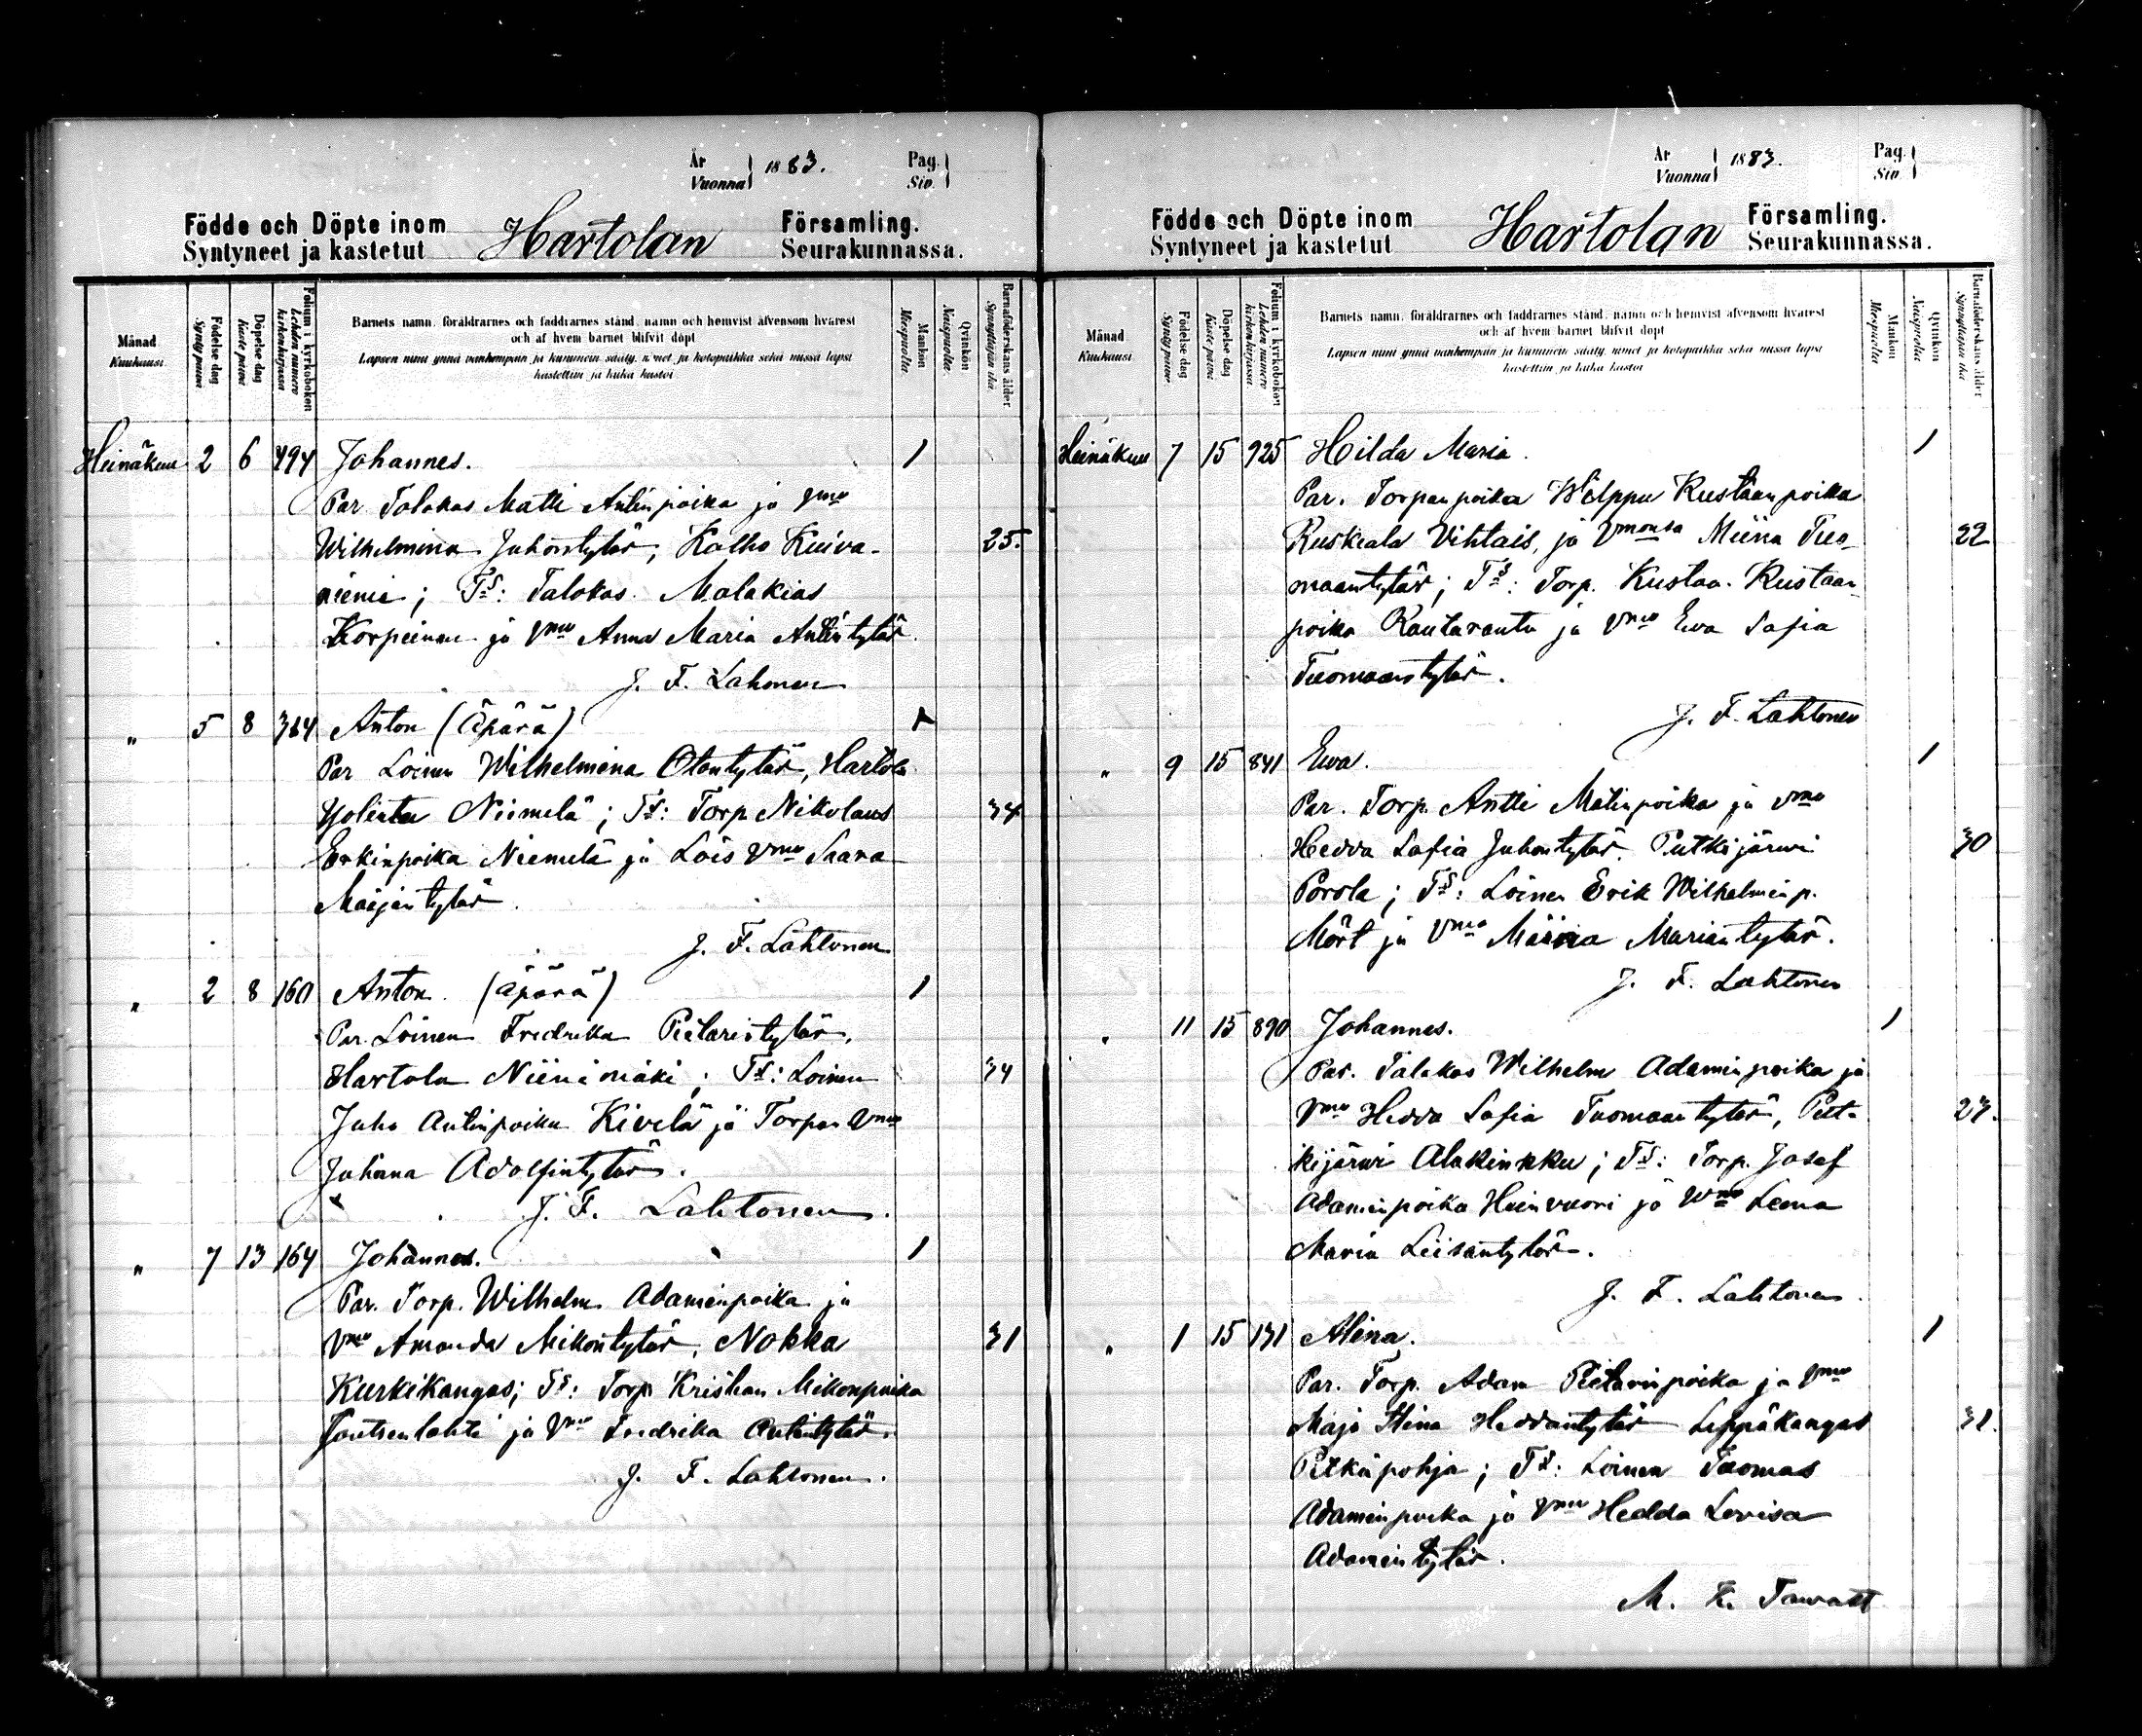 År
Vuonna 1883.
Pag.
Siv.
Födde och Döpte inom Hartolan Församling.
Syntyneet ja kastetut Seurakunnassa.
Månad
Kuukausi
Födelse dag
Synty päivä
Döpelse dag
Kaste päivä
Folium i kyrkoboken
Lehden numero kirkonkirjassa
Barnets namn, föräldrarnes och faddrarnes stånd, namn och hemvist äfvensom hvarest
och af hvem barnet blifvit döpt
Lapsen nimi ynnä vanhempain ja kummein sääty, nimet ja kotopaikka sekä missä lapsi
kastettiin ja kuka kastoi
Mankön
Miespuolia
Qvinkön
Naispuolia
Barnaföderskans ålder
Synnyttäjän ikä
Heinäkuu 2 6 494 Johannes. 1
Par. Talokas Matti Antinpoika ja Vmo
Wilhelmina Juhontytär, Kalho Kuiva- 25.
niemi; Ts: Talokas Malakias
Korpeinen ja Vmo Anna Maria Antintytär.
J. F. Lahtonen
" 5 8 364 Anton (Äpärä) 1
Par Loinen Wilhelmina Otontytär, Hartola
Niemelä; Ts: Torp Nikolaus 34
Erkinpoika Niemelä ja Lois Vmo Saara
Maijantytär.
J. F. Lahtonen
" 2 8 160 Anton. (Äpärä) 1
Par. Loinen Fredrika Pietarintytär,
Hartola Niinimäki; Ts: Loinen 34
Juho Antinpoika Kivelä ja Torpar Vmo
Juhana Adolfintytär.
J. F. Lahtonen.
" 7 13 164 Johannes. 1
Par. Torp. Wilhelm Adaminpoika ja
Vmo Amanda Mikontytär, Nokka 31
Kurkikangas; Ts: Torp Kristian Mikonpoika
Joutsenlahti ja Vmo Fredrika Antintytär.
J. F. Lahtonen.
År
Vuonna 1883.
Pag.
Siv.
Födde och Döpte inom Hartolan Församling.
Syntyneet ja kastetut Seurakunnassa.
Månad
Kuukausi
Födelse dag
Synty päivä
Döpelse dag
Kaste päivä
Folium i kyrkoboken
Lehden numero kirkonkirjassa
Barnets namn, föräldrarnes och faddrarnes stånd, namn och hemvist äfvensom hvarest
och af hvem barnet blifvit döpt
Lapsen nimi ynnä vanhempain ja kummein sääty, nimet ja kotopaikka sekä missä lapsi
kastettiin ja kuka kastoi
Mankön
Miespuolia
Qvinkön
Naispuolia
Barnaföderskans ålder
Synnyttäjän ikä
Heinäkuu 7 15 925 Hilda Maria. 1
Par. Torpanpoika Wilppu Kustaanpoika
Ruskeala Vihtais, ja Vmonsa Miina Tuo- 22
maantytär; Ts: Torp. Kustaa Kustaan-
poika Rautaranta ja Vmo Ewa Sofia
Tuomaantytär.
J. F. Lahtonen
" 9 15 841 Ewa. 1
Par. Torp. Antti Matinpoika ja Vmo
Hedda Sofia Juhontytär, Putkijärwi 30
Porola; Ts: Loinen Erik Wilhelminp.
Mört ja Vmo Marian tytär.
J. F. Lahtonen
" 11 15 890 Johannes. 1
Par. Talokas Wilhelm Adaminpoika ja
Vmo Hedda Sofia Tuomaantytär, Put- 27.
kijärwi Alakinkku; Ts: Torp. Josef
Adaminpoika Heinvuori ja Vmo Leena
Maria Liisantytär.
J. F. Lahtonen.
" 1 15 131 Alina. 1
Par. Torp. Adam Pietarinpoika ja Vmo
Maja Stina Heddantytär Leppäkangas 31.
Pitkäpohja; Ts: Loinen Tuomas
Adaminpoika ja Vmo Hedda Lovisa
Adamintytär.
M. K. Tawast